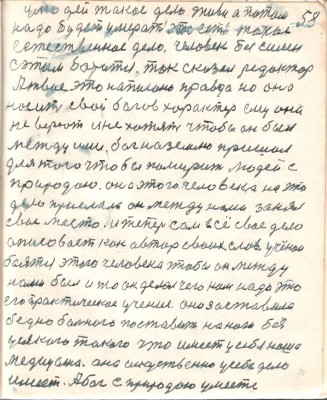 58
что дей такое дело живи а потом
надо будет умерат это есть такое
естественное дело. человек бессилен
с этим боротся, так сказал редактор
Я твое это написано правда но она
носит свой богов характер ему они
не верют и не хотят чтобы он был
между ими, бог на землю пришол
для того чтобы помирить людей с
природою. она этого человека на это
дело прислала он между нами занял
свое место. и теперь сам всё свое дело
описовает как автор своих слов. учёнои
боятся этого человека чтобы он между
нами был и то он делал чего нам надо это
его практическое учение. оно заставило
бедно болного поставить на ноги без
усякого такого что имеет у себя наша
медицина. она следственно у себе дело
имеет. А бог с природою умеете